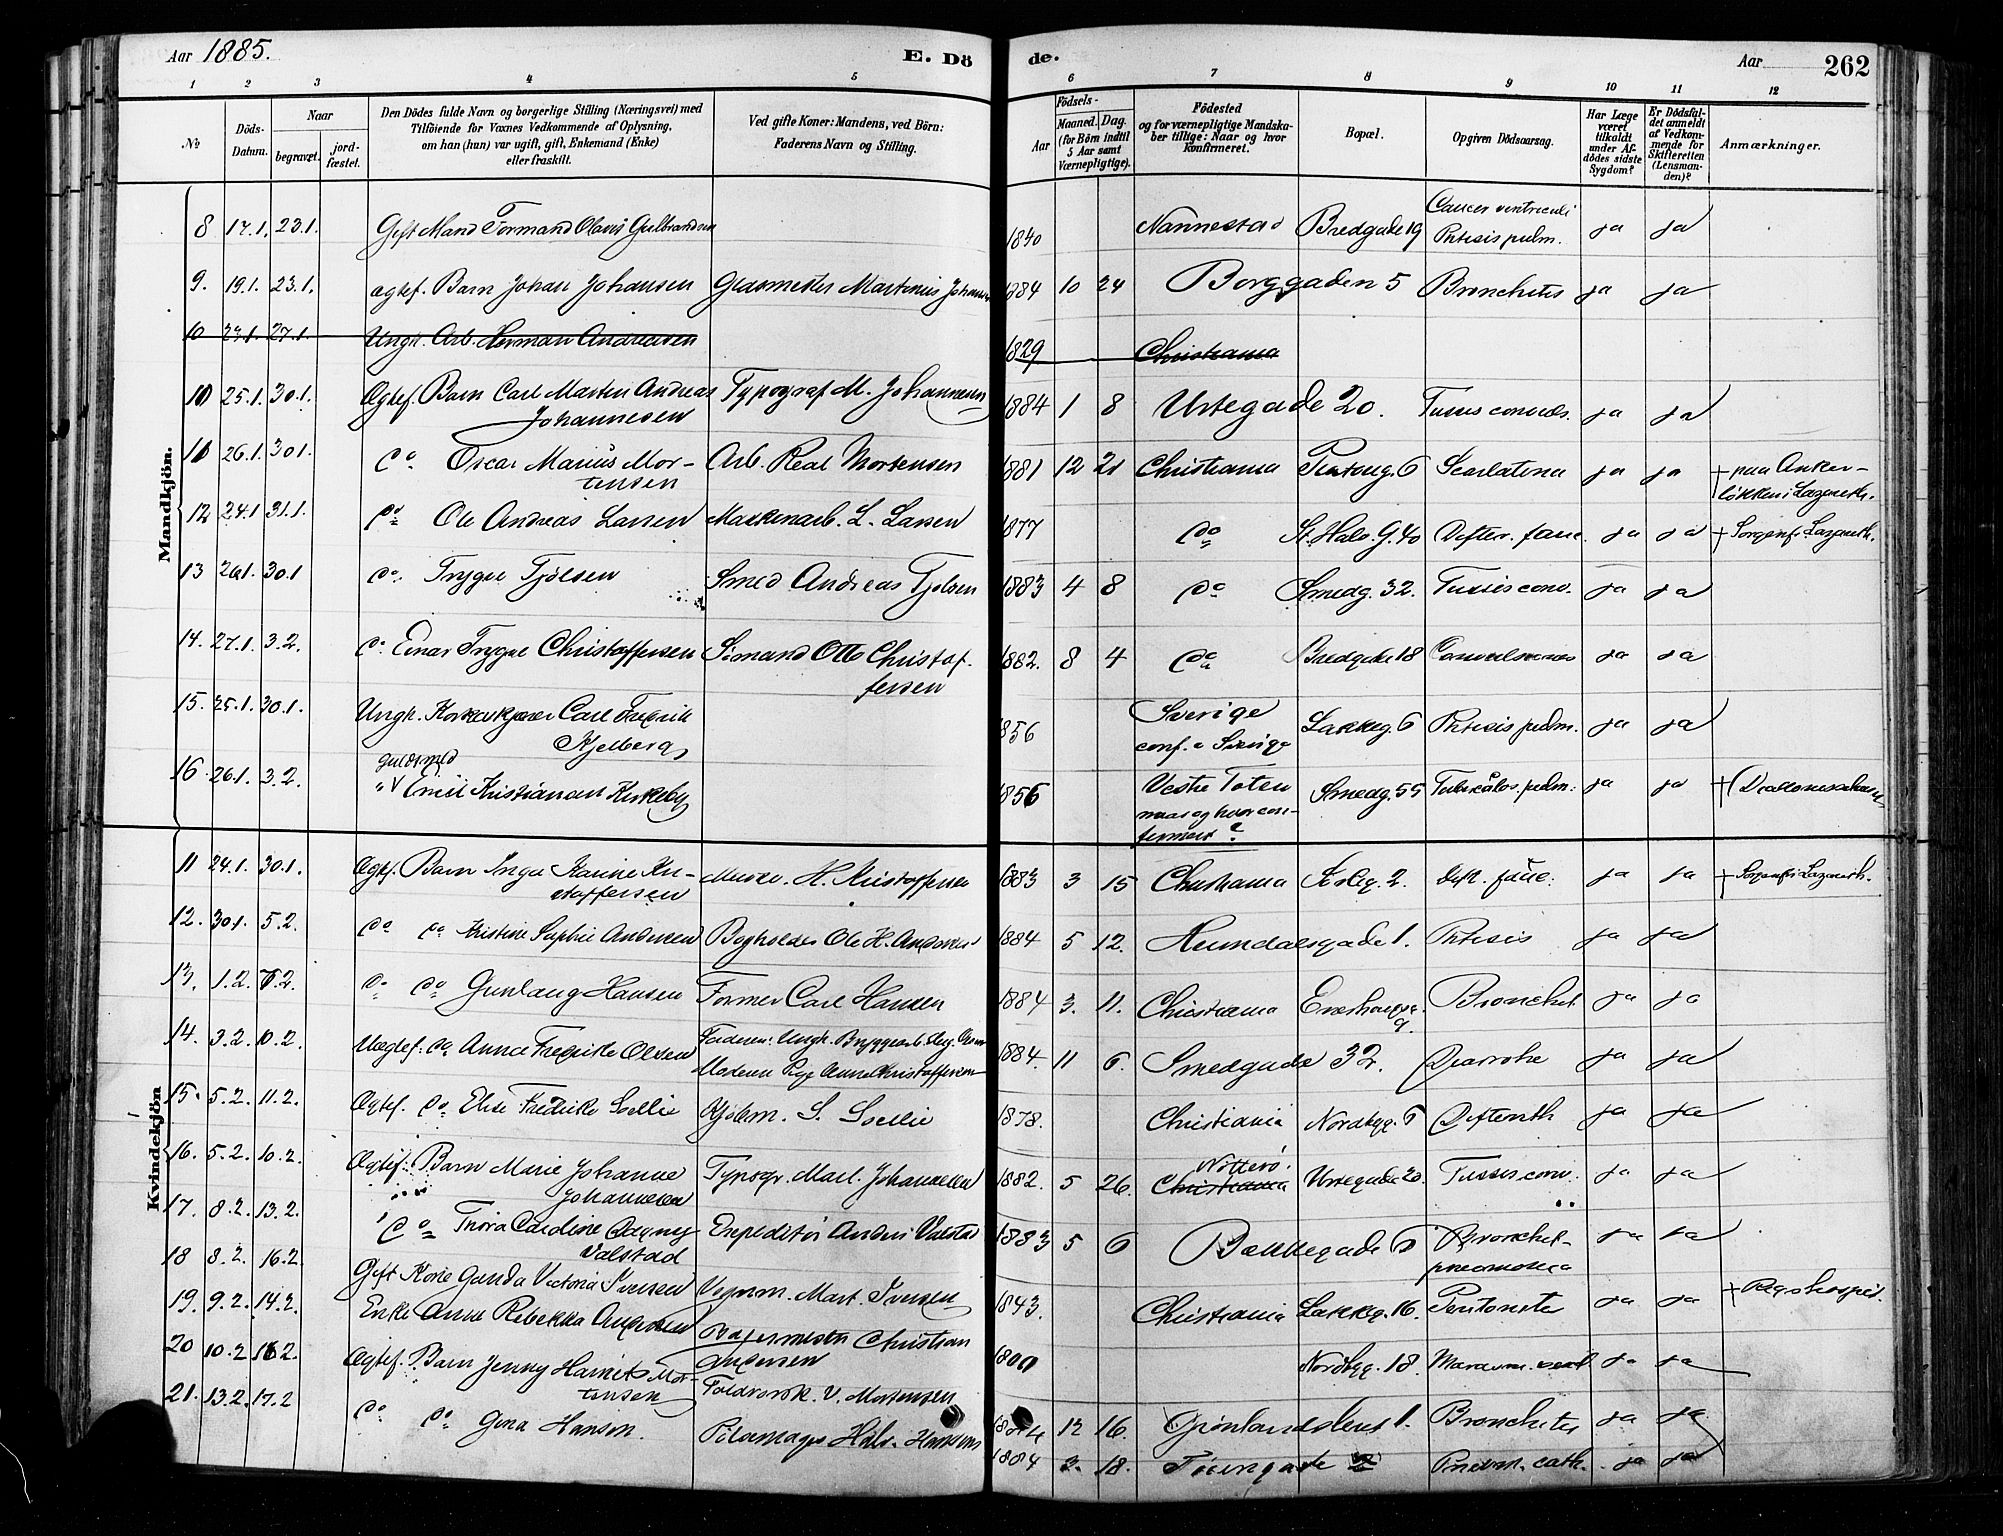 Aar 1885.
E. Dö
de.
Aar
262
1 2 3 4 5 6 7 8 9 10 11 12
№
Döds-Datum.
Naar
begravet.
jord-fæstet.
Den Dödes fulde Navn og borgerlige Stilling (Næringsvei) med
Tilföiende for Voxnes Vedkommende af Oplysning,
om han (hun) var ugift, gift, Enkemand (Enke)
eller fraskilt.
Ved gifte Koner: Mandens, ved Börn:
Faderens Navn og Stilling.
Födsels-
Aar
Maaned. Dag.
(for Börn indtil
5 Aar samt
Værnepligtige).
Födested
og for værnepligtige Mandska-
ber tillige: Naar og hvor
Konfirmeret.
Bopæl.
Opgiven Dödsaarsag.
Har Læge
været
tilkaldt
under Af-
dödes sidste
Sygdom?
Er Dödsfal-
det anmeldt
af Vedkom-
mende for
Skifteretten
(Lensman-
den)?
Anmærkninger.
Mandkjön.
8 17.1. 23.1. Gift Mand Formand Olaus Gulbrandsen 1840 Nannestad Bredgade 19 Cancer ventriculi
Phtisis pulm. ja ja
9. 19.1. 23.1. ægtef. Barn Johan Johansen Glasmester Martinius Johansen 1884 10 24 Borggaden 5 Bronchites ja ja
10 23.1. 27.1. Ungk. Arb. Herman Andreasen 1829 Christiania
10 25.1. 30.1. Ægtef. Barn Carl Martin Andreas Typograf M. Johannesen 1884 1 8 Urtegade 20. Tussis convuls. ja ja
Johannesen
11 26.1. 30.1 do. Oscar Marius Mor- Arb. Real Mortensen 1881 12 21 Christiania 6 Scarlatina ja ja + paa Anker-
tensen løkken i Lazareth.
12 24.1 31.1. do Ole Andreas Larsen L. Larsen 1877 do St. Halv. G. 40 Defter. fauc. ja ja + Sorgenfr. Lazareth.
13 26.1. 30.1 do. Trygve Tjølsen Smed Andreas Tjølsen 1883 4 8 do Smedg. 32. Tussis conv. ja ja
14. 27.1. 3.2. do Einar Trygve Christoffersen Otto Christof- 1882. 8 4 do Bredgade 18 ja ja
fersen
15. 25.1. 30.1. Ungk. Carl Fredrik 1856 Sverige Lakkeg. 6 Phtisis pulm. ja ja
Kjelberg conf. i Sverige
16 26.1. 3.2. guldsmed
" Emil Kristianan Kirkeby 1856 Vestre Toten Smedg. 55 Tuberculos. pulm. ja ja
naar og hvor con-
firmeret?
Kvindekjön
11 24.1. 30.1. Ægtef. Barn Inga Karine Kri- H. Kristoffersen 1883 3 15 Christiania 2. fauc. ja ja + Sorgenfri Lazareth.
stoffersen
12. 30.1. 5.2. do do Kristine Sophie Andersen Bogholder Ole H. Andersen 1884 5 12. Heimdalsgade 1. Phtisis ja ja
13. 1.2. 7.2. do do Gunlaug Hansen Former Carl Hansen 1884 3. 11. Christiania Enerhaugg. Bronchit ja ja
9.
14. 3.2. 10.2. Uægtef. do Anna Fredrikke Olsen Faderen: Ungk. 1884. 11 6. Smedgade 32. Diarrohe ja ja
Moderen Pige Anne Kristoffersen
15. 5.2. 11.2. Ægtef. do Elise Fredrikke Sollie Kjøbm. S. Sollie 1878. Christiania Nordbyg. 6 Difterith ja ja
16. 5.2. 10.2. Ægtef. Barn Marie Johanne Typogr. Mart. Johannesen 1882. 5 26. Nøtterø. Christiania Urtegade 20. Tussis conv. ja ja
Johannesen
17. 8.2. 13.2. do Thora Caroline Dagny Expeditør Anders Valstad 1883 5 6 Bakkegade 6 Bronchit- ja ja
Valstad pneumonia
18 8.2. 16.2. Gift Kone Gunda Victoria Svensen Vognm. Mart. 1843. Christiania Lakkg. 16. Peritonite ja ja + Rigshospit.
19. 9.2. 14.2. Enke Anne Rebekka Andersen Bagermester Christian
Andersen 1809 Nordbyg. 18. ja ja
20 10.2 16.2. Ægtef. Barn Jenny Harriet Mor- Toldvorsk. V. Mortensen 1884 12 16. Grønlandsleret 1. Bronchites ja ja
tensen
21. 13.2. 17.2 do do Gina Hansen. Hansen 1884 3. 18. Tøiengade Pneum. cath. ja ja